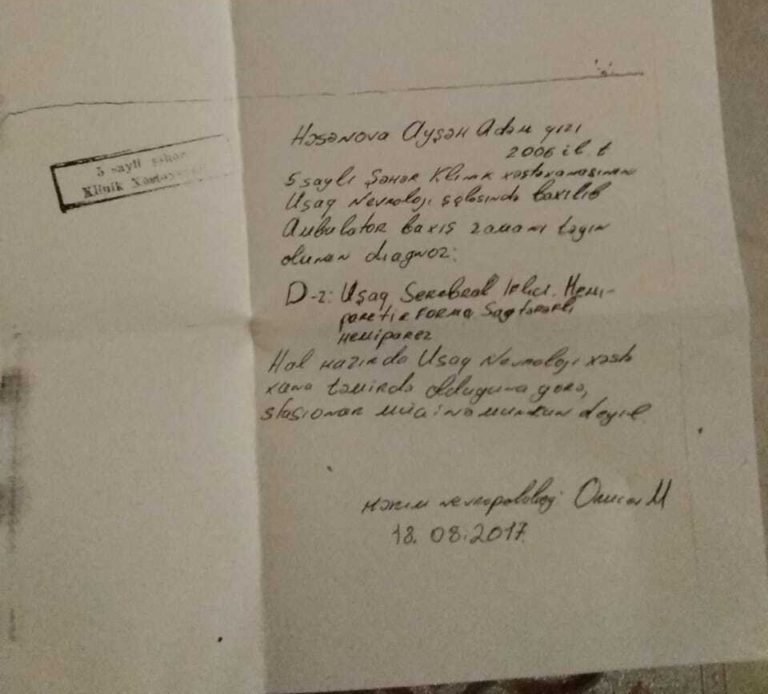 5 saylı şəhər
Klinik Xəstəxana
Həsənova Ayşən Adəm qızı
2006 il. t
5 saylı Şəhər Klinik xəstəxanasının
Uşaq Nevroloji şöbəsində baxılıb
Ambulator baxış zamanı təyin
olunan diaqnoz:
D-z: Uşaq Serebral iflici. Hemi-
paretik Forma Sağtərəfli
Hemiparez
Hal hazırda Uşaq Nevroloji xəstə
xana təmirdə olduğuna görə,
stasionar müainə mümkün deyil
Həkim nevropatoloq:
18.08.2017